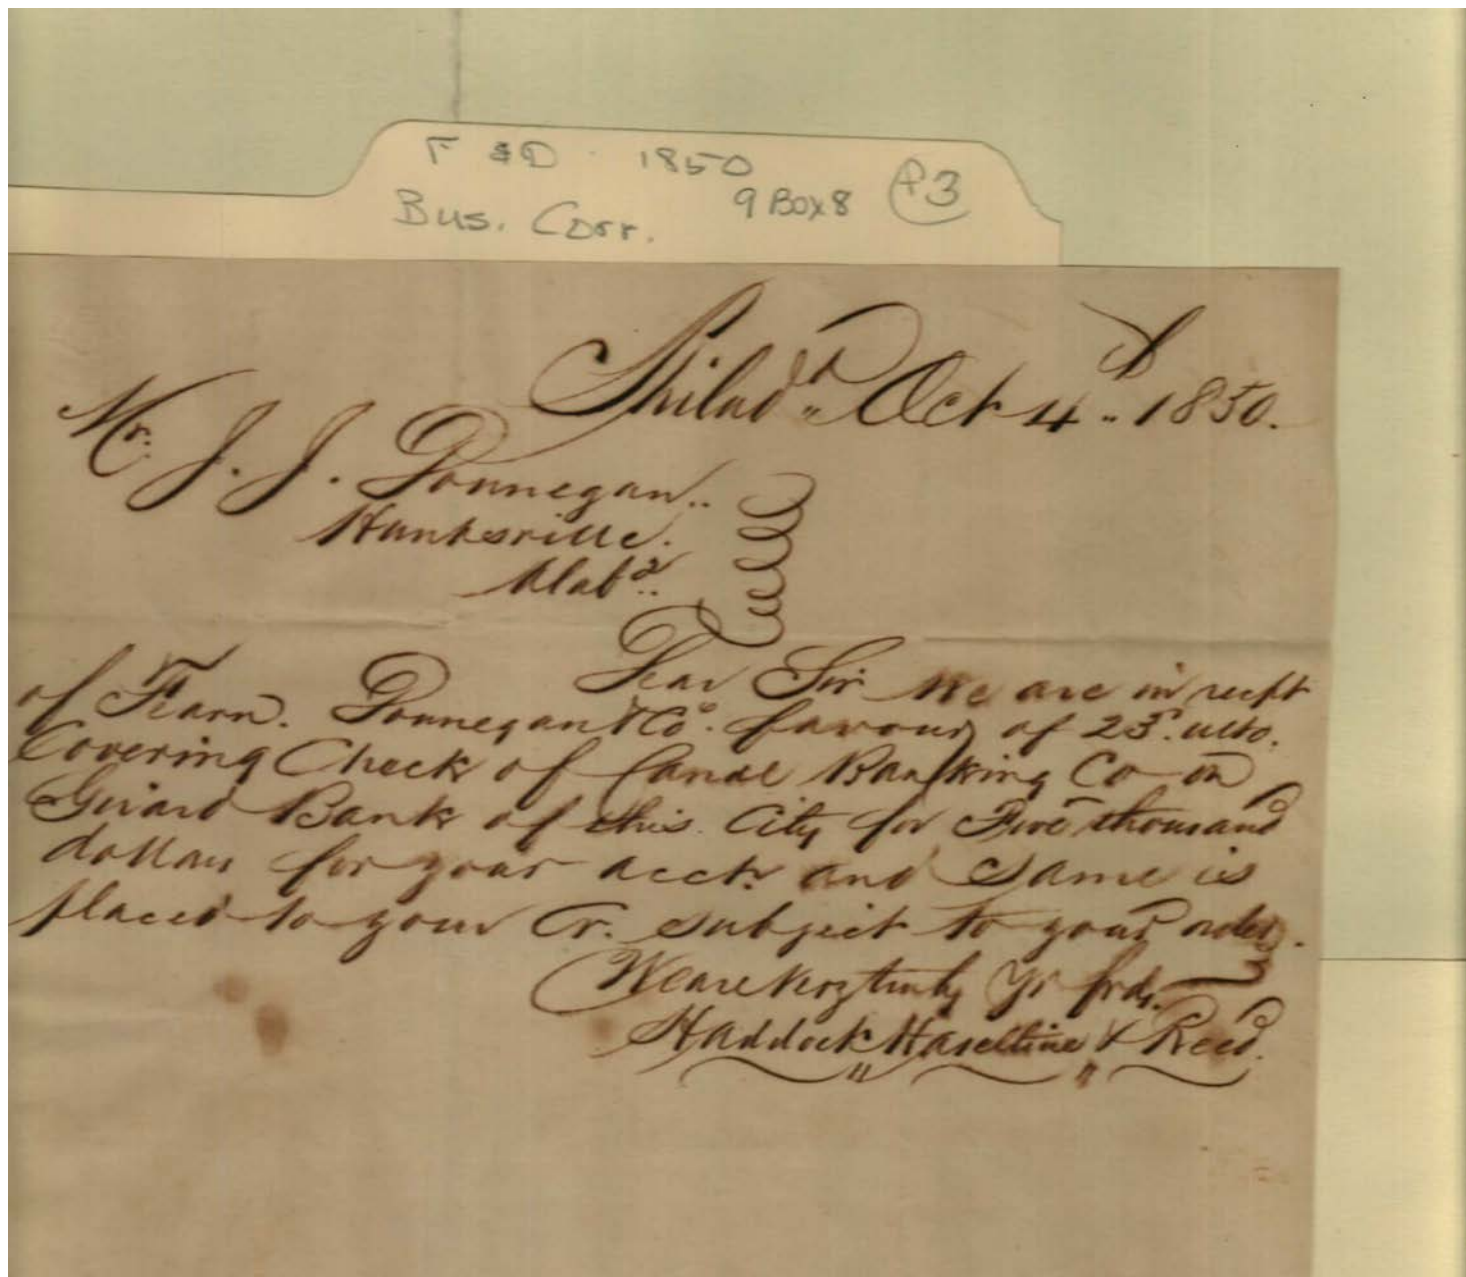 F & D 1850
9 Box 8
P3
Bus. Corr.
Philada Oct 4th 1850.
Mr. J. J. Donnegan
Huntsville.
Alaba
Dear Sir We are in recpt
of Fearn. Donnegan & Co. favour of 23d. ulto.
Covering Check of Canal Banking Co on
Girard Bank of this City for Five thousand
dollars for your acct. and Same is
placed to your Cr. subject to your order.
We are very truly Yr frds.
Haddock Haseltine & Reed.